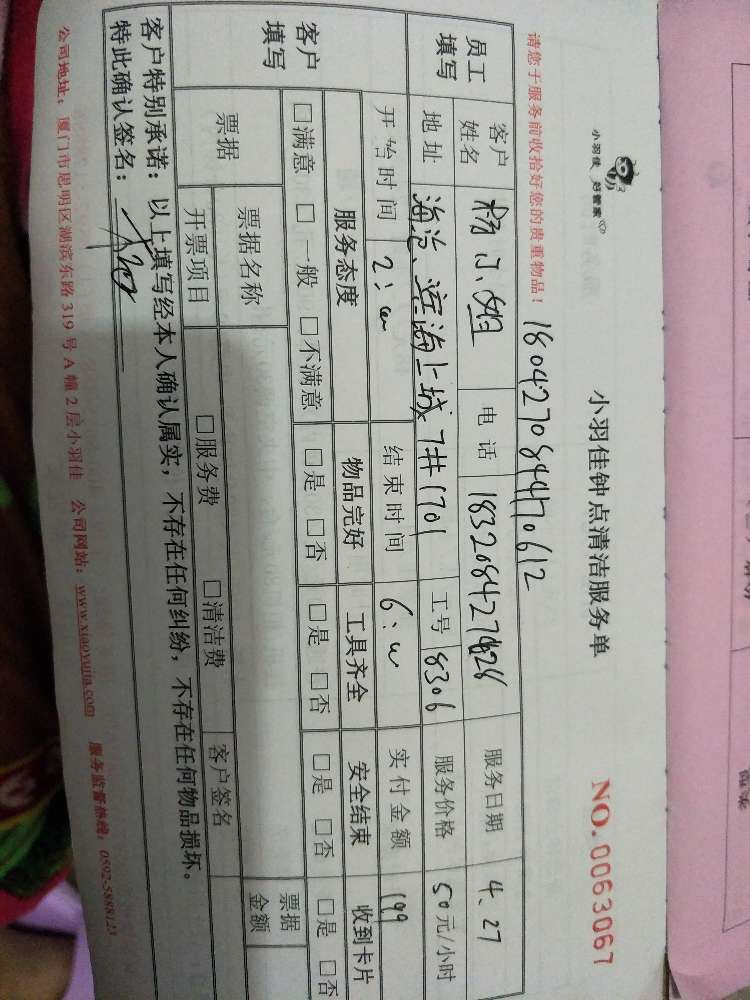 小羽佳 好管家
小羽佳钟点清洁服务单
NO. 0063067
请您于服务前收拾好您的贵重物品！
180427084470612
员工填写
客户姓名 杨小姐 电话 服务日期 4、27
地址 海沧、滨海上城 7#1701 工号 8306 服务价格 50元/小时
开始时间 2： 结束时间 6： 实付金额 199
客户填写
服务态度 物品完好 工具齐全 安全结束 收到卡片
□满意 □一般 □不满意 □是 □否 □是 □否 □是 □否 □是 □否
票据 票据名称 票据金额
开票项目 □服务费 □清洁费 客户签名
客户特别承诺：以上填写经本人确认属实，不存在任何纠纷，不存在任何物品损坏。
特此确认签名：
公司地址：厦门市思明区湖滨东路319号A幢2层小羽佳 公司网站：www.xiaoyujia.com 服务监督热线：0592-5888123